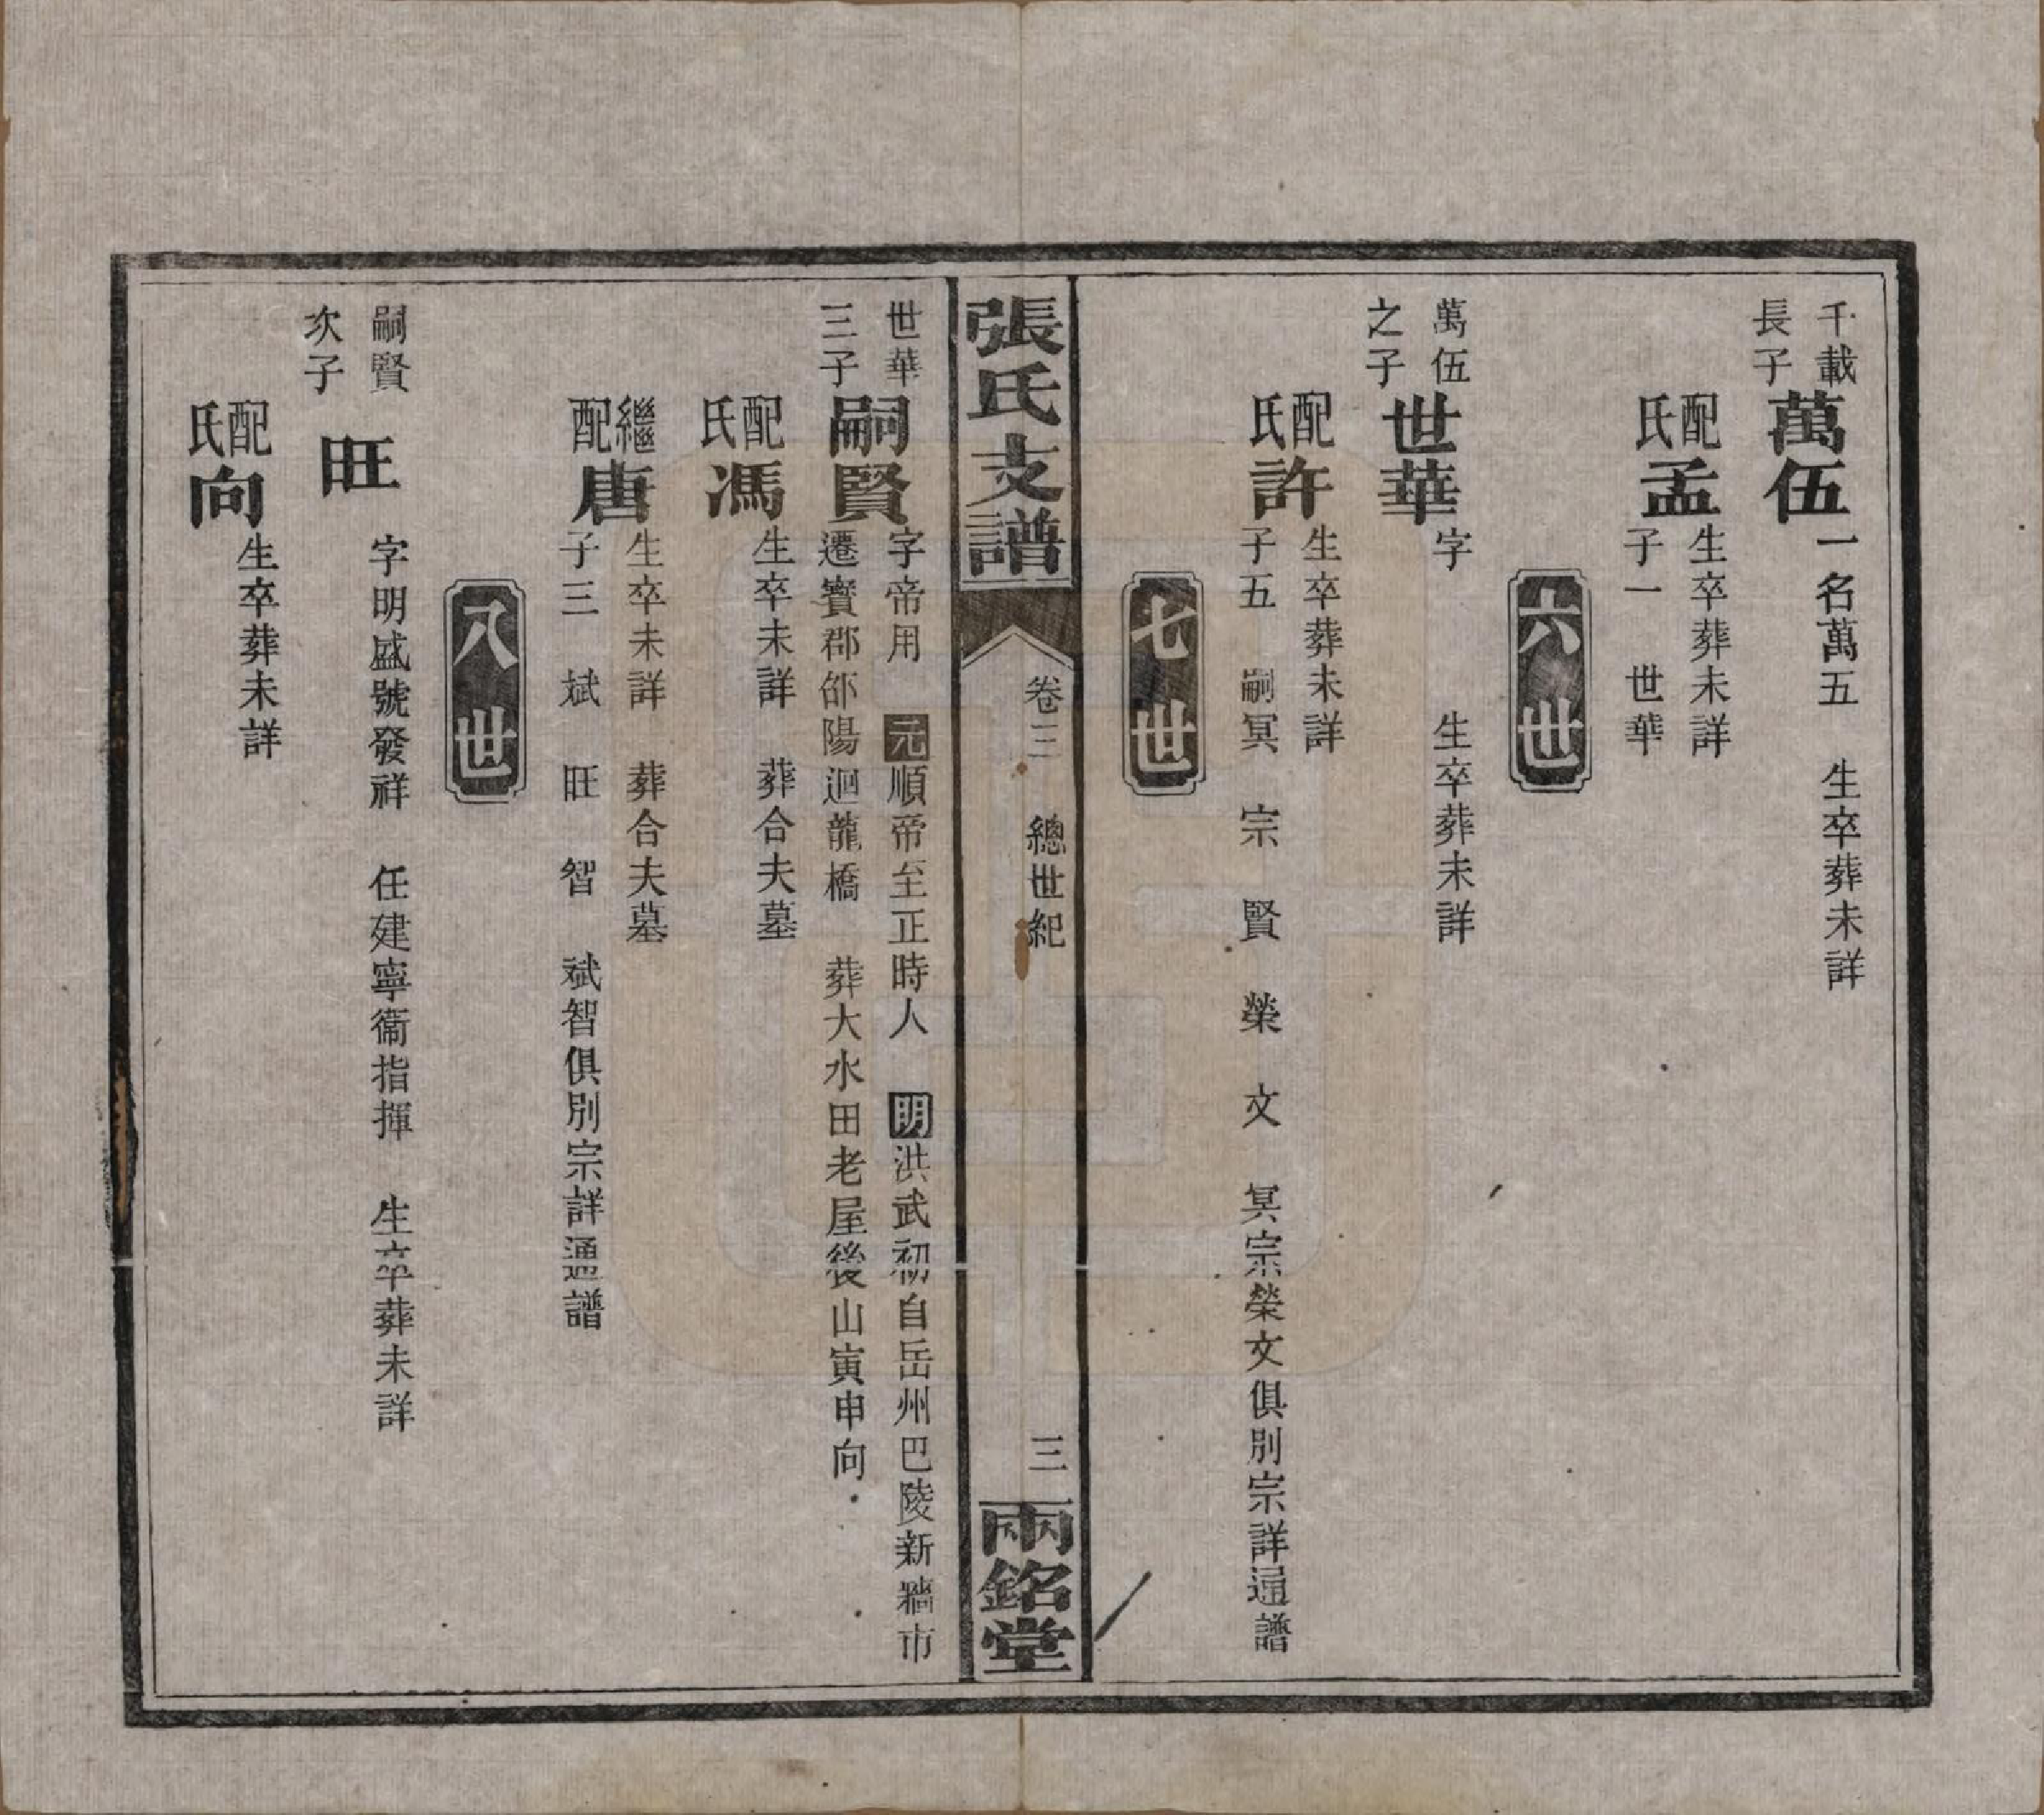 千載
長子
萬伍
一名萬五　生卒葬未詳
配
氏
孟
生卒葬未詳
子一　世華
六世
萬伍
之子
世華
字　　　生卒葬未詳
配
氏
許
生卒葬未詳
子五　嗣冥　宗　賢　榮　文　冥宗榮文俱別宗詳通譜
七世
張氏支譜
卷三　總世紀
三
兩銘堂
世華
三子
嗣賢
字帝用　元順帝至正時人　明洪武初自岳州巴陵新牆市
遷寶郡邵陽迴龍橋　葬大水田老屋後山寅申向
配
氏
馮
生卒未詳　葬合夫墓
繼
配
唐
生卒未詳　葬合夫墓
子三　斌　旺　智　斌智俱別宗詳通譜
八世
嗣賢
次子
旺
字明盛號發祥　任建寧衞指揮　生卒葬未詳
配
氏
向
生卒葬未詳